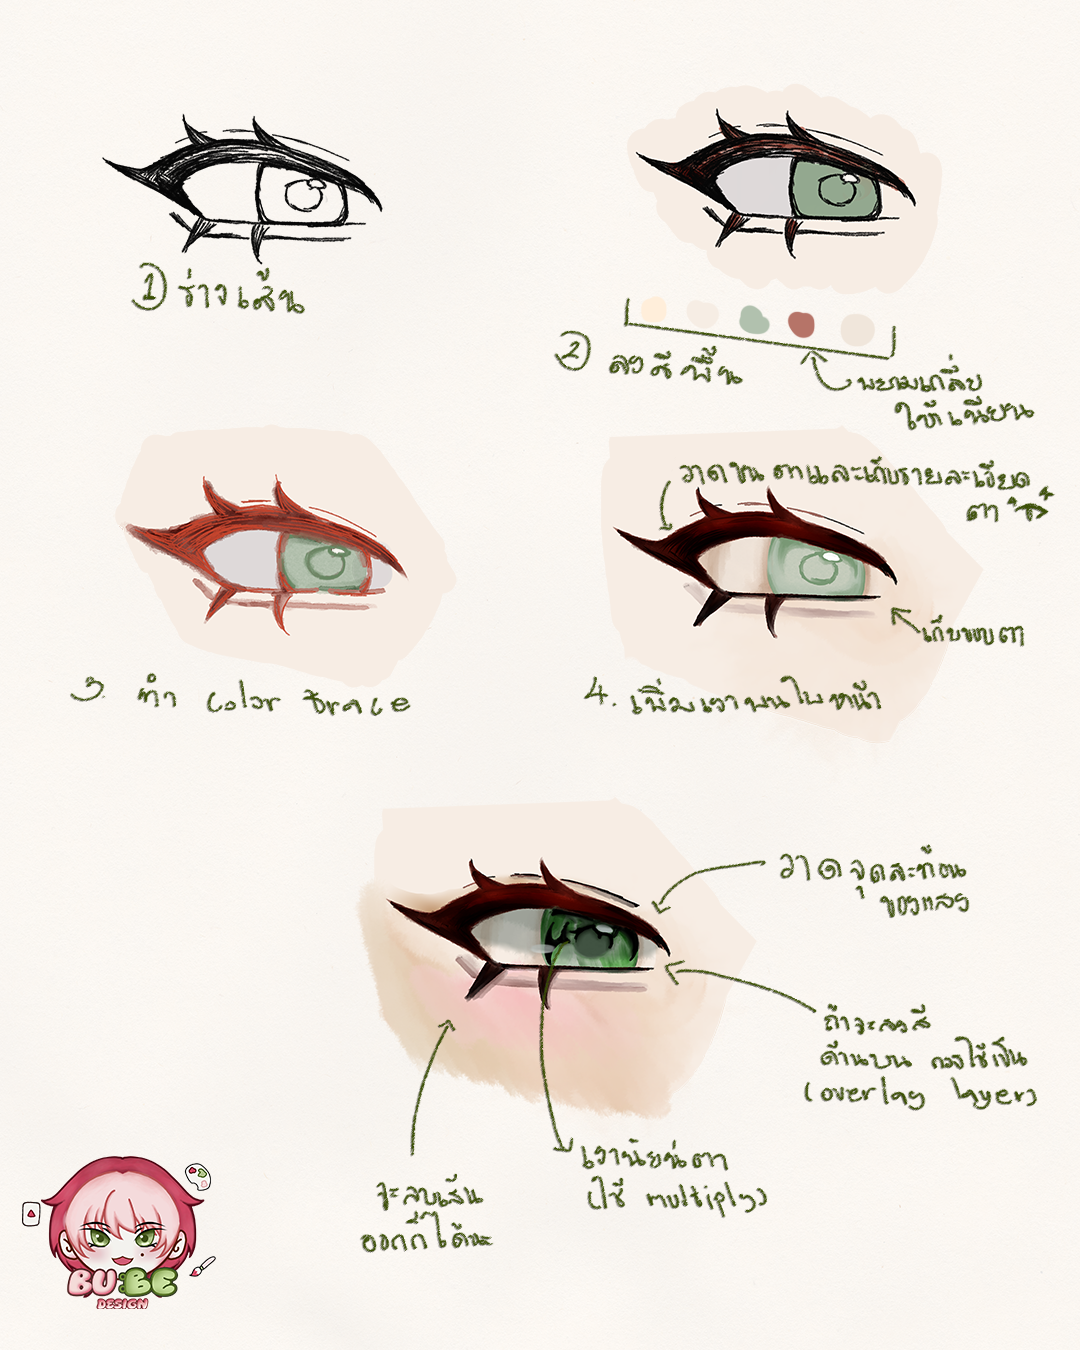 ① ร่างเส้น
② ลงสีพื้น
พยามเกลี่ย
ให้เนียน
3. ทำ Color Trace
วาดขนตาและเก็บรายละเอียด
ตา
เก็บขอบตา
4. เพิ่มเงาบนใบหน้า
วาดจุดสะท้อน
ของแสง
ถ้าจะลงสี
ด้านบน ควรใช้เป็น
(overlay layer)
เงานัยน์ตา
(ใช้ multiply)
จะลบเส้น
ออกก็ได้นะ
BUBE
DESIGN